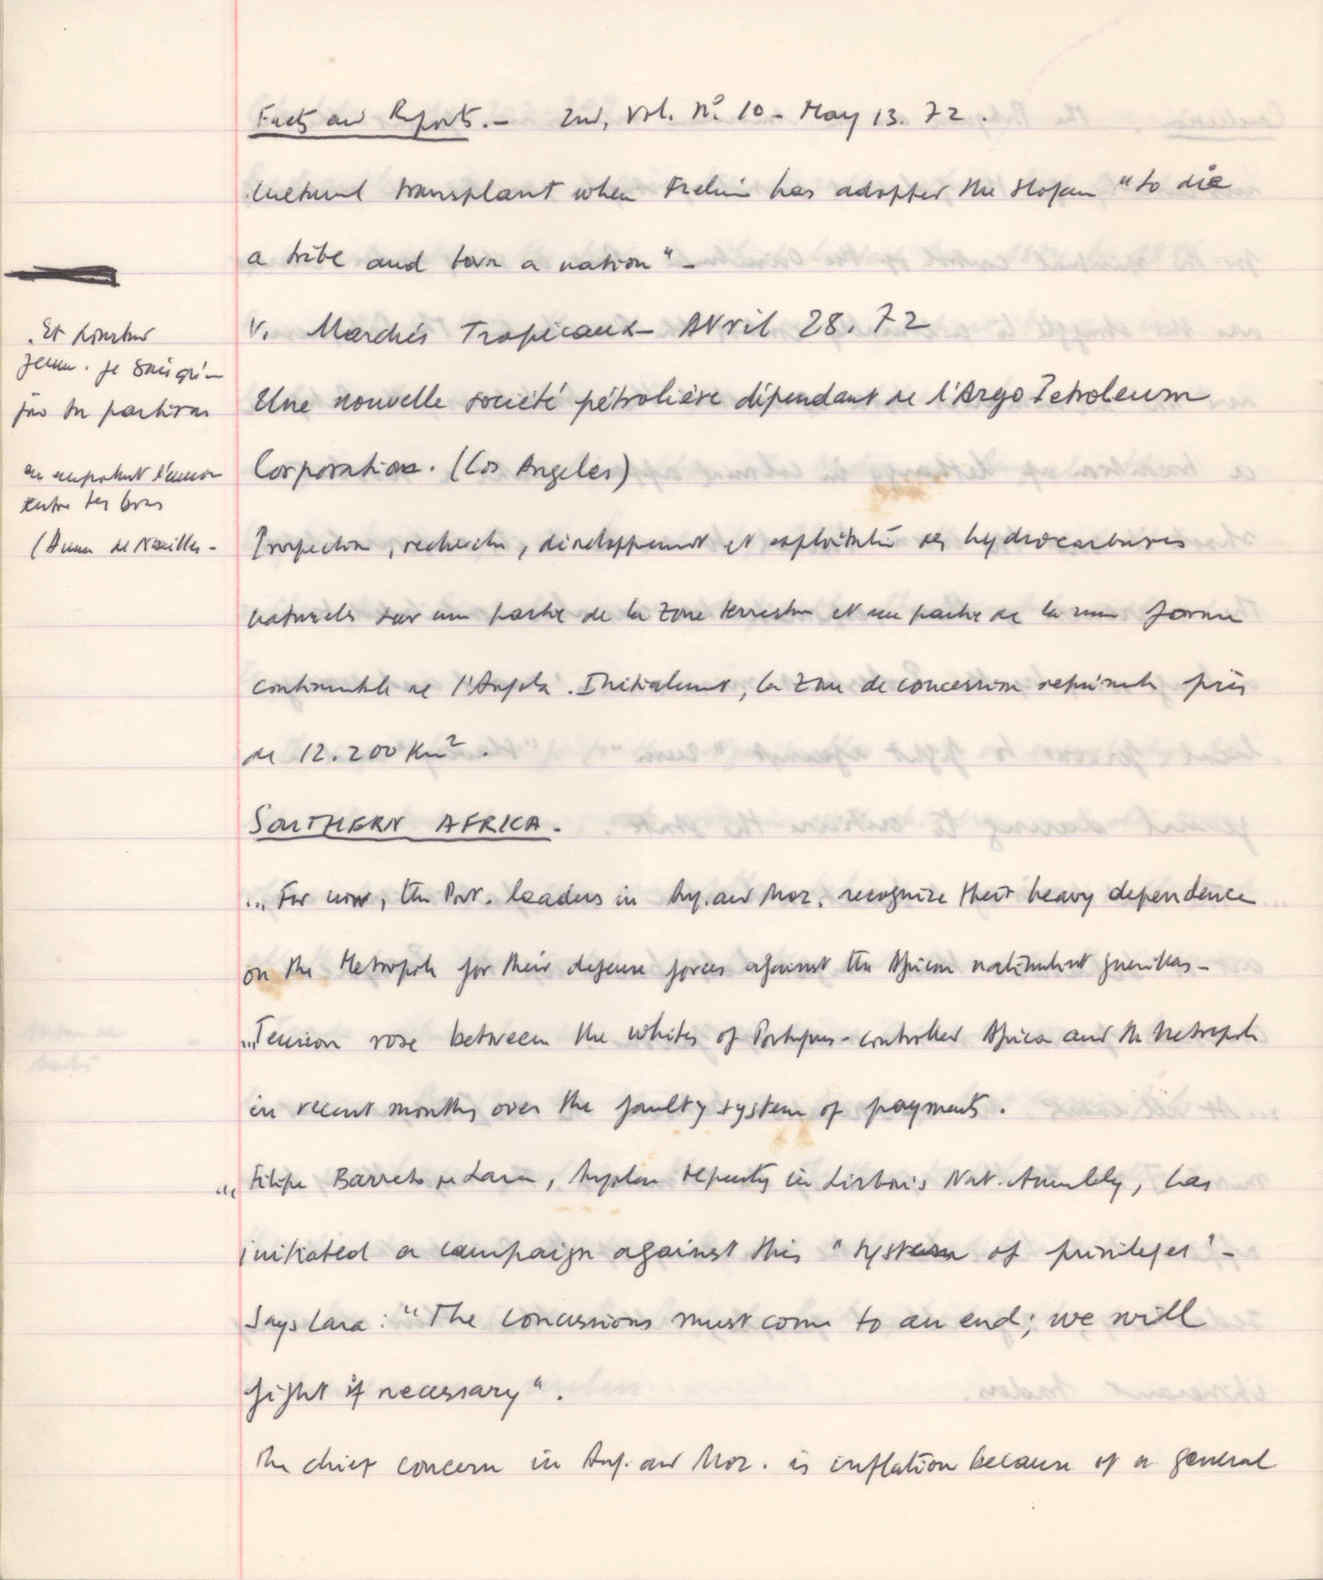 Facts and Reports. - 2nd, Vol. Nº 10 - May 13. 72.
Cultural transplant when Frelimo has adopted the slogan "to die
a tribe and born a nation" -
V. Marchés Tropicaux - Avril 28. 72
Une nouvelle société pétrolière dépendant de l'Argo Petroleum
Corporation. (Los Angeles)
Prospection, recherche, développement et exploitation des hydrocarbures
naturels sur une partie de la zone terrestre et une partie de la forme
continentale de l'Angola. Initialement, la zone de concession représente près
de 12.200 Km².
SOUTHERN AFRICA.
... For now, the Port. leaders in Ang. and Moz. recognize their heavy dependence
on the Metropole for their defense forces against the African nationalist guerillas -
... Tension rose between the whites of Portuguese-controlled Africa and the Metropole
in recent months over the faulty system of payments.
"Filipe Barreto de Lara, Angolan deputy in Lisbon's Nat. Assembly, has
initiated a campaign against this "system of privileges" -
Says Lara: "The concessions must come to an end; we will
fight if necessary".
The chief concern in Ang. and Moz. is inflation because of a general
. Et pourtant
Je suis
partirai
en emportant l'amour
entre tes bras
(Anna de Noailles -